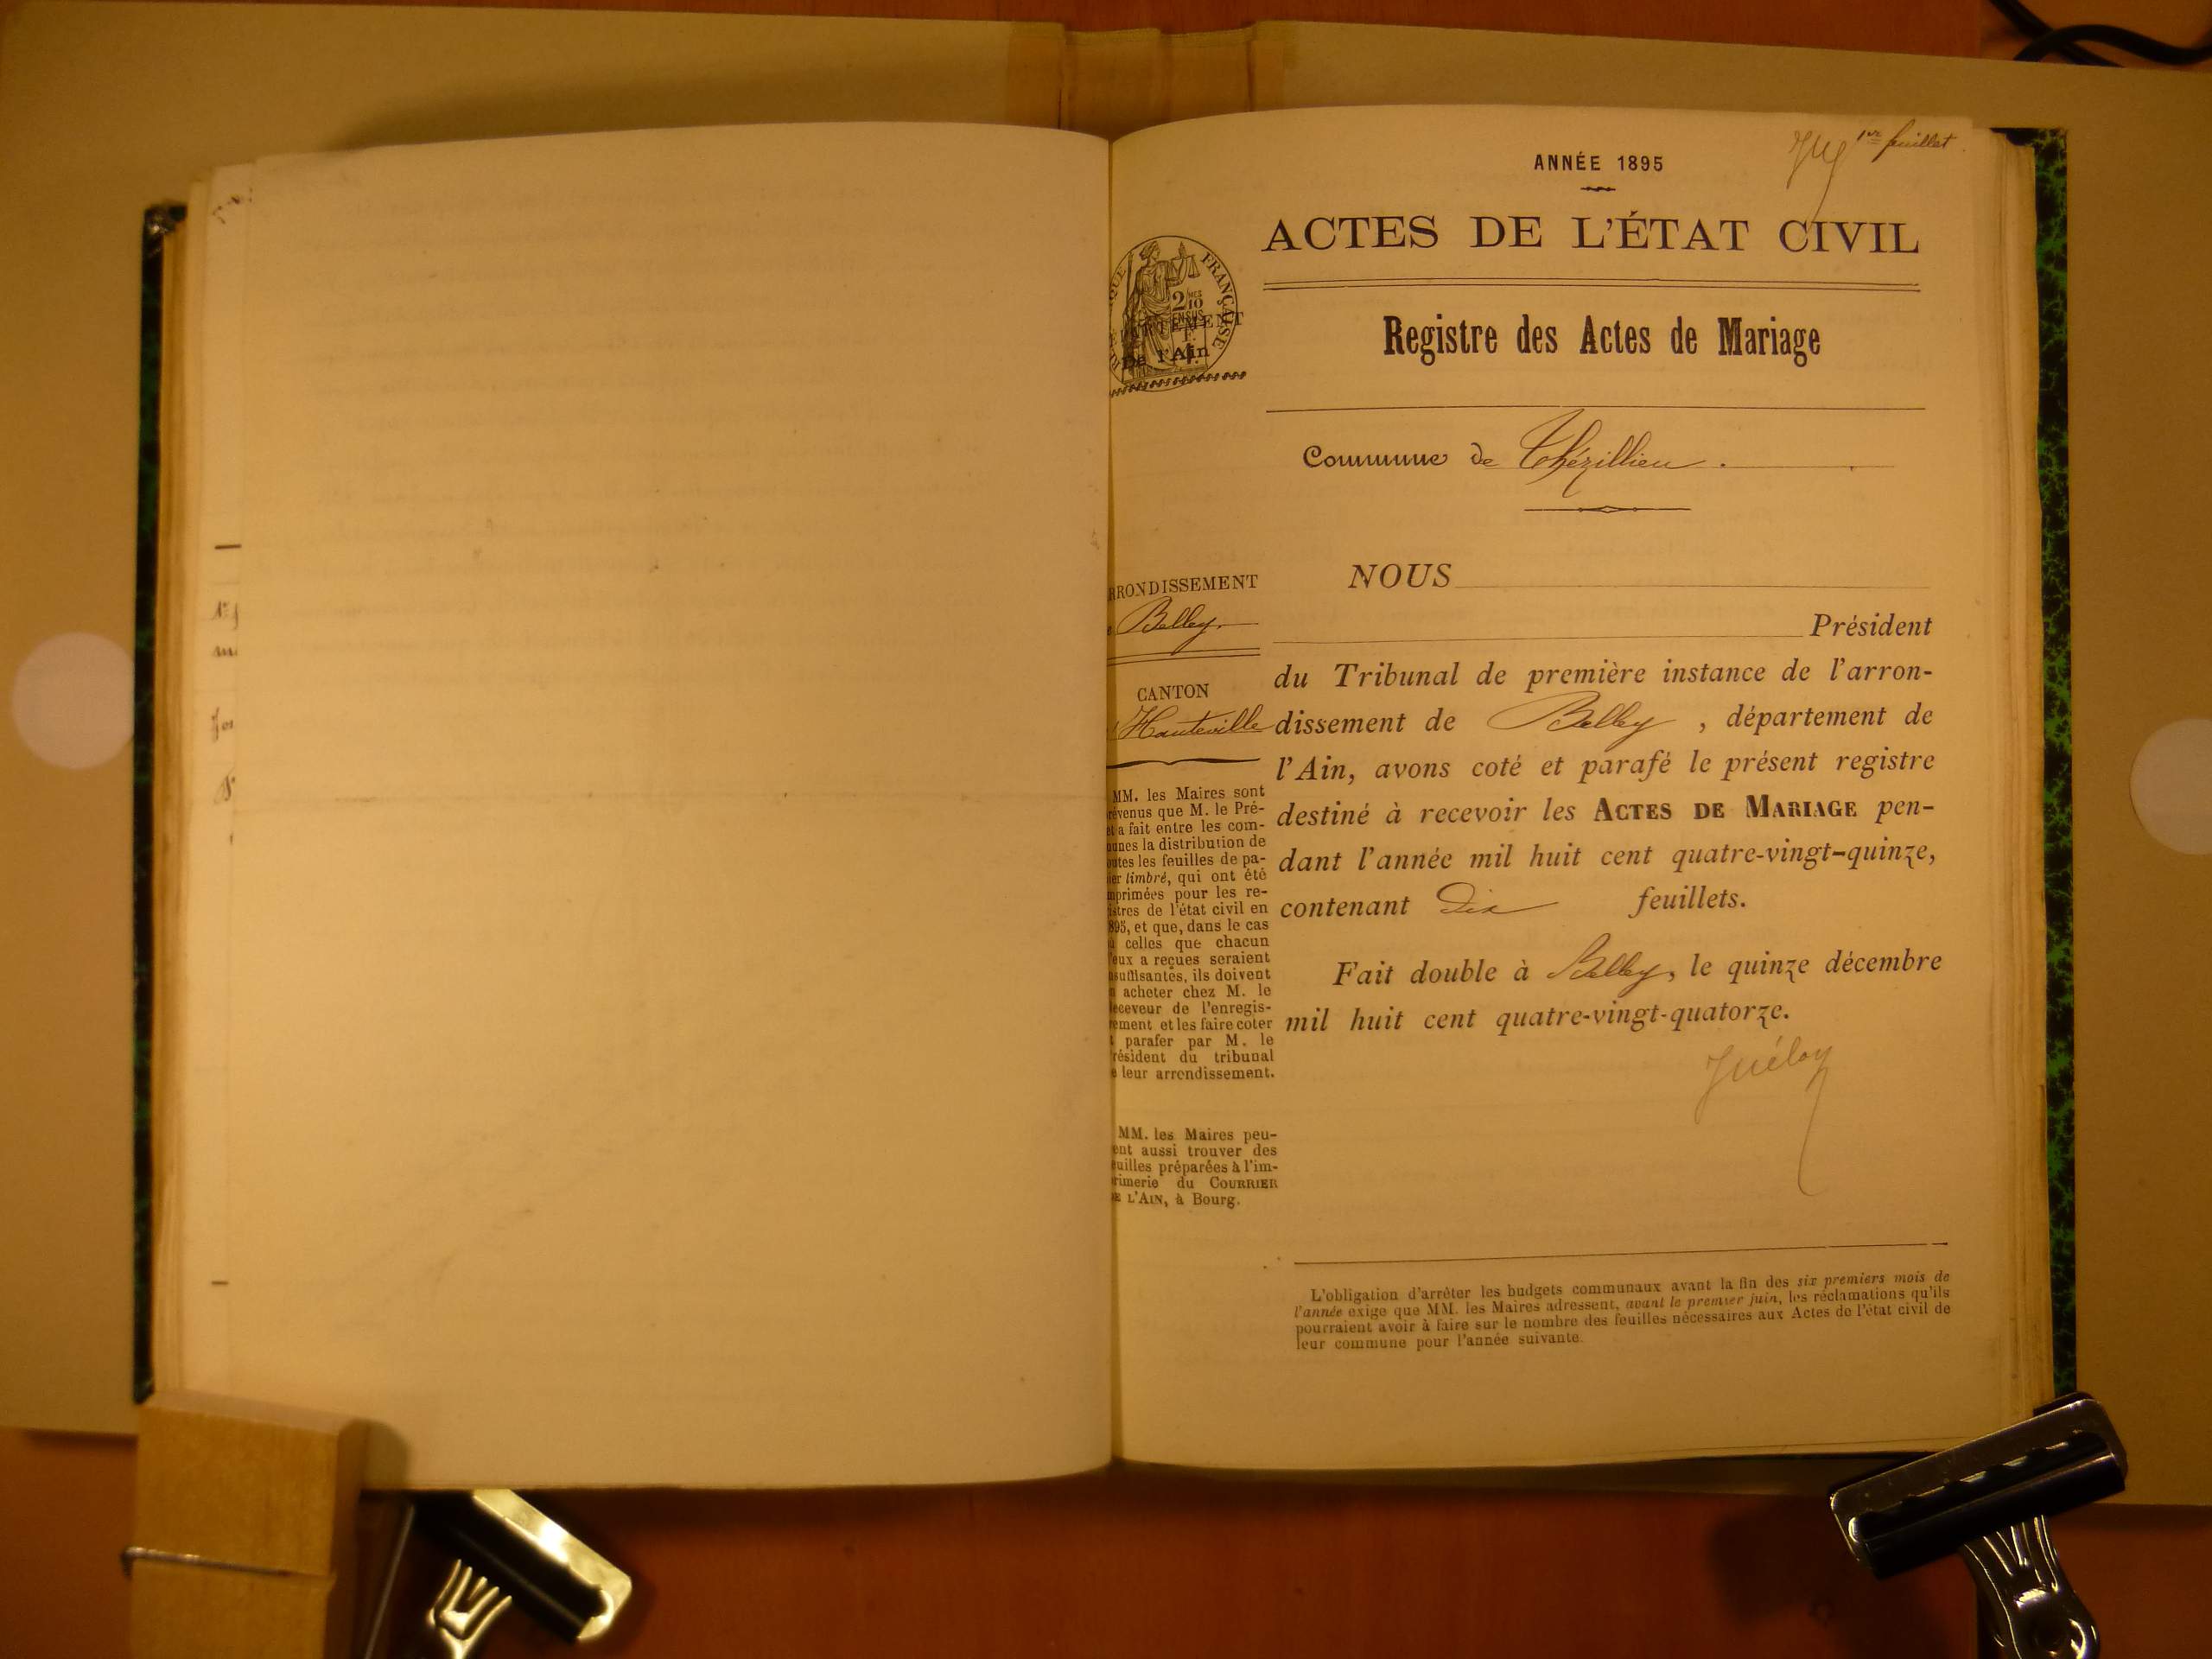 1er feuillet
ANNÉE 1895
ACTES DE L'ÉTAT CIVIL
Registre des Actes de Mariage
QUE FRANÇAISE
2/10
EN SUS
De l'Ain
Commune de Thézillieu.
RRONDISSEMENT
Belley.
CANTON
d'Hauteville
MM. les Maires sont
révenus que M. le Pré-
et a fait entre les com-
unes la distribution de
outes les feuilles de pa-
ier timbré, qui ont été
mprimées pour les re-
istres de l'état civil en
895, et que, dans le cas
ù celles que chacun
'eux a reçues seraient
nsuffisantes, ils doivent
n acheter chez M. le
eceveur de l'enregis-
rement et les faire coter
t parafer par M. le
résident du tribunal
e leur arrondissement.
MM. les Maires peu-
ent aussi trouver des
euilles préparées à l'im-
rimerie du COURRIER
DE L'AIN, à Bourg.
NOUS
Président
du Tribunal de première instance de l'arron-
dissement de Belley , département de
l'Ain, avons coté et parafé le présent registre
destiné à recevoir les ACTES DE MARIAGE pen-
dant l'année mil huit cent quatre-vingt-quinze,
contenant Dix feuillets.
Fait double à Belley, le quinze décembre
mil huit cent quatre-vingt-quatorze.
L'obligation d'arrêter les budgets communaux avant la fin des six premiers mois de
l'année exige que MM. les Maires adressent, avant le premier juin, les réclamations qu'ils
pourraient avoir à faire sur le nombre des feuilles nécessaires aux Actes de l'état civil de
leur commune pour l'année suivante.